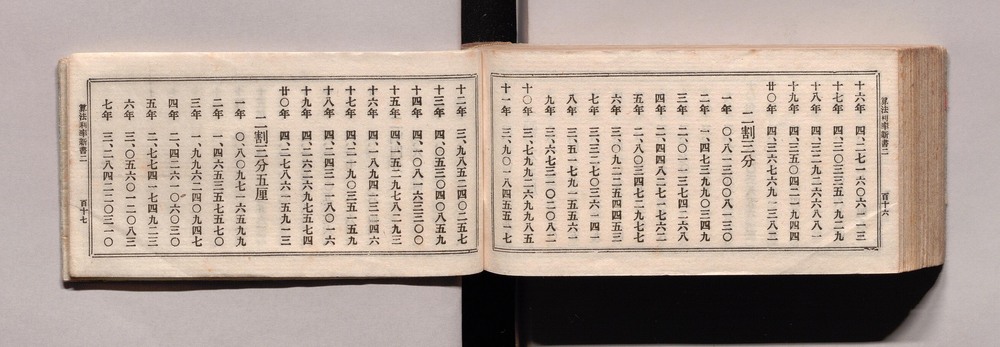 算法利率新書二
百十六
十六年 四、二七一六〇六一一三
十七年 四、三〇三三五一九二九
十八年 四、三二九二六六八八一
十九年 四、三五〇四二一九四四
廿〇年 四、三六七六九一三八二
二割三分
一年 〇、八一三〇〇八一三〇
二年 一、四七三九九〇三四九
三年 二、〇一一三七四二六八
四年 二、四四八二七一七六二
五年 二、八〇三四七二九七七
六年 三、〇九二二五四四五三
七年 三、三二七〇三六一四一
八年 三、五一七九一五五六一
九年 三、六七三一〇二〇八二
十〇年 三、七九九二六九九八五
十一年 三、九〇一八四五五一七
十二年 三、九八五二四〇二五七
十三年 四、〇五三〇四〇八五九
十四年 四、一〇八一六三三〇〇
十五年 四、一五二九七八二九三
十六年 四、一八九四一三二四六
十七年 四、二一九〇三五一五九
十八年 四、二四三一一八〇一六
十九年 四、二六二六九七五七四
廿〇年 四、二七八六一五九一三
二割三分五厘
一年 〇、八〇九七一六五九九
二年 一、四六五三五七五七〇
三年 一、九九六二四〇九四七
四年 二、四二六一〇六〇三〇
五年 二、七七四一七四九二三
六年 三、〇五六〇一二〇八三
七年 三、二八四二二〇三一〇
算法利率新書二
百十七